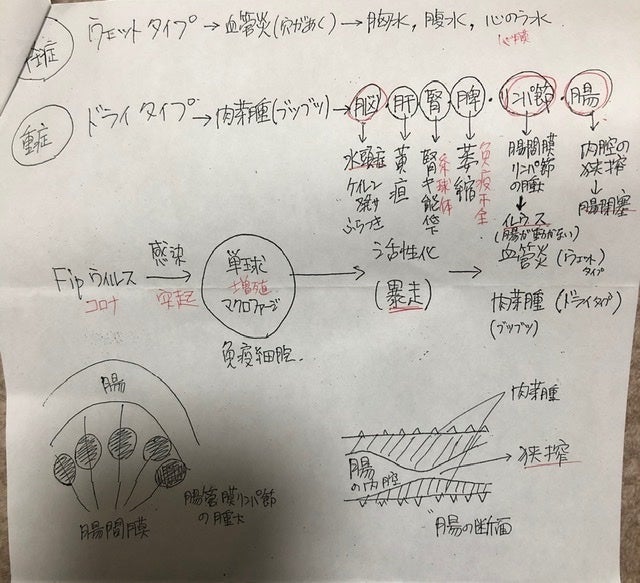 ウェットタイプ→血管炎(穴があく)→胸水,腹水,心のう水
心膜
重症
ドライタイプ→肉芽腫(ブツブツ)→脳・肝・腎・脾・リンパ節・腸
水頭症
ケイレン
発作
ふらつき
黄疸
腎キ能低下
糸球体
萎縮
免疫不全
腸間膜
リンパ節
の腫大
↓
イレウス
(腸が動かない)
内腔の
狭搾
↓
腸閉塞
Fipウィルス
コロナ
感染
突起
単球
増殖
マクロファージ
免疫細胞
活性化
(暴走)
血管炎(ウェットタイプ)
肉芽腫(ドライタイプ)
(ブツブツ)
腸
腸間膜
腸管膜リンパ節
の腫大
肉芽腫
狭搾
腸
の内腔
腸の断面